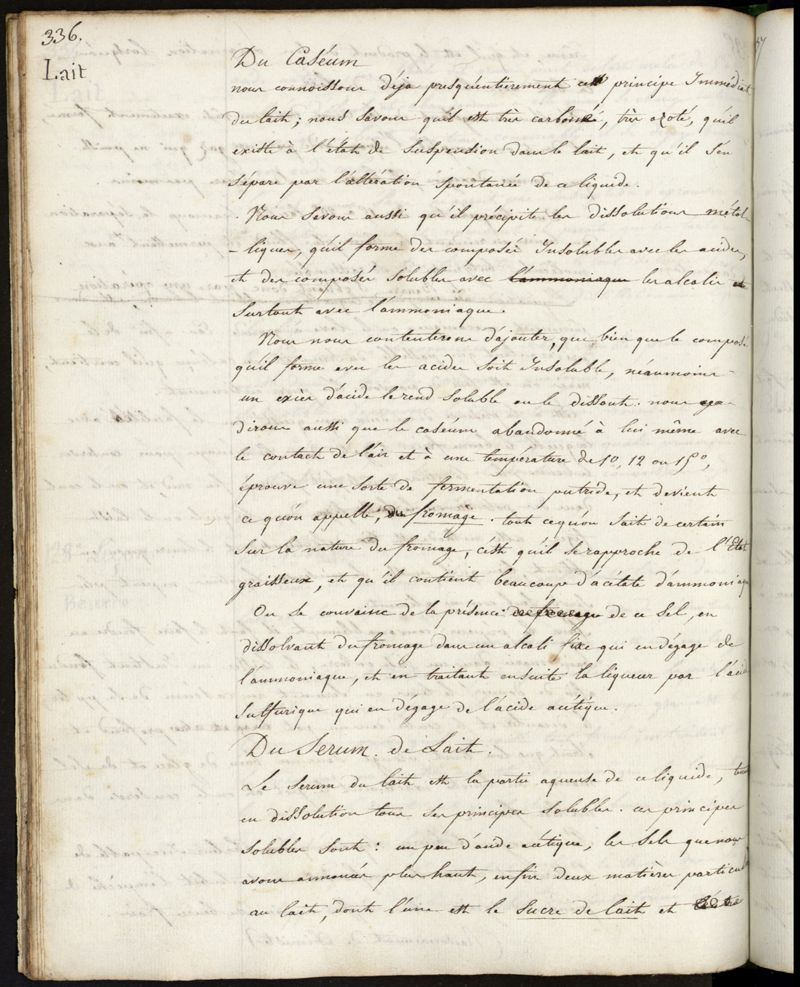 336.
Lait
Du Caséum
nous connoissons déja presqu'entierement ce principe Immédiat
du lait; nous savons qu'il est très carboné, très azoté, qu'il
existe à l'état de suspension dans le lait, et qu'il s'en
sépare par l'altération spontanée de ce liquide.
. Nous savons aussi qu'il précipite les dissolutions métal-
-liques, qu'il forme des composés Insolubles avec les acides,
et des composés solubles avec l'ammoniaque les alcalis et
surtout avec l'ammoniaque.
Nous nous contenterons d'ajouter, que bien que le composé
qu'il forme avec les acides soit Insoluble, néanmoins
un excès d'acide le rend soluble ou le dissout. nous
dirons aussi que le caséum abandonné à lui même avec
le contact de l'air et à une température de 10, 12 ou 15°,
éprouve une sorte de fermentation putride, et devient
ce qu'on appelle, du fromage. tout ce qu'on sait de certain
sur la nature du fromage, c'est qu'il se rapproche de l'Etat
graisseux, et qu'il contient beaucoup d'acétate d'ammoniaque
On se convainc de la présence du fromage de ce sel, en
dissolvant du fromage dans un alcali fixe qui en dégage de
l'ammoniaque, et en traitant ensuite la liqueur par l'acide
sulfurique qui en dégage de l'acide acétique.
Du Serum. de Lait.
Le serum du lait est la partie aqueuse de ce liquide,
en dissolution tous ses principes solubles. ces principes
solubles sont: un peu d'acide acétique, les sels que nous
avons annoncés plus haut, enfin deux matières particul
au lait, dont l'une est le sucre de lait et